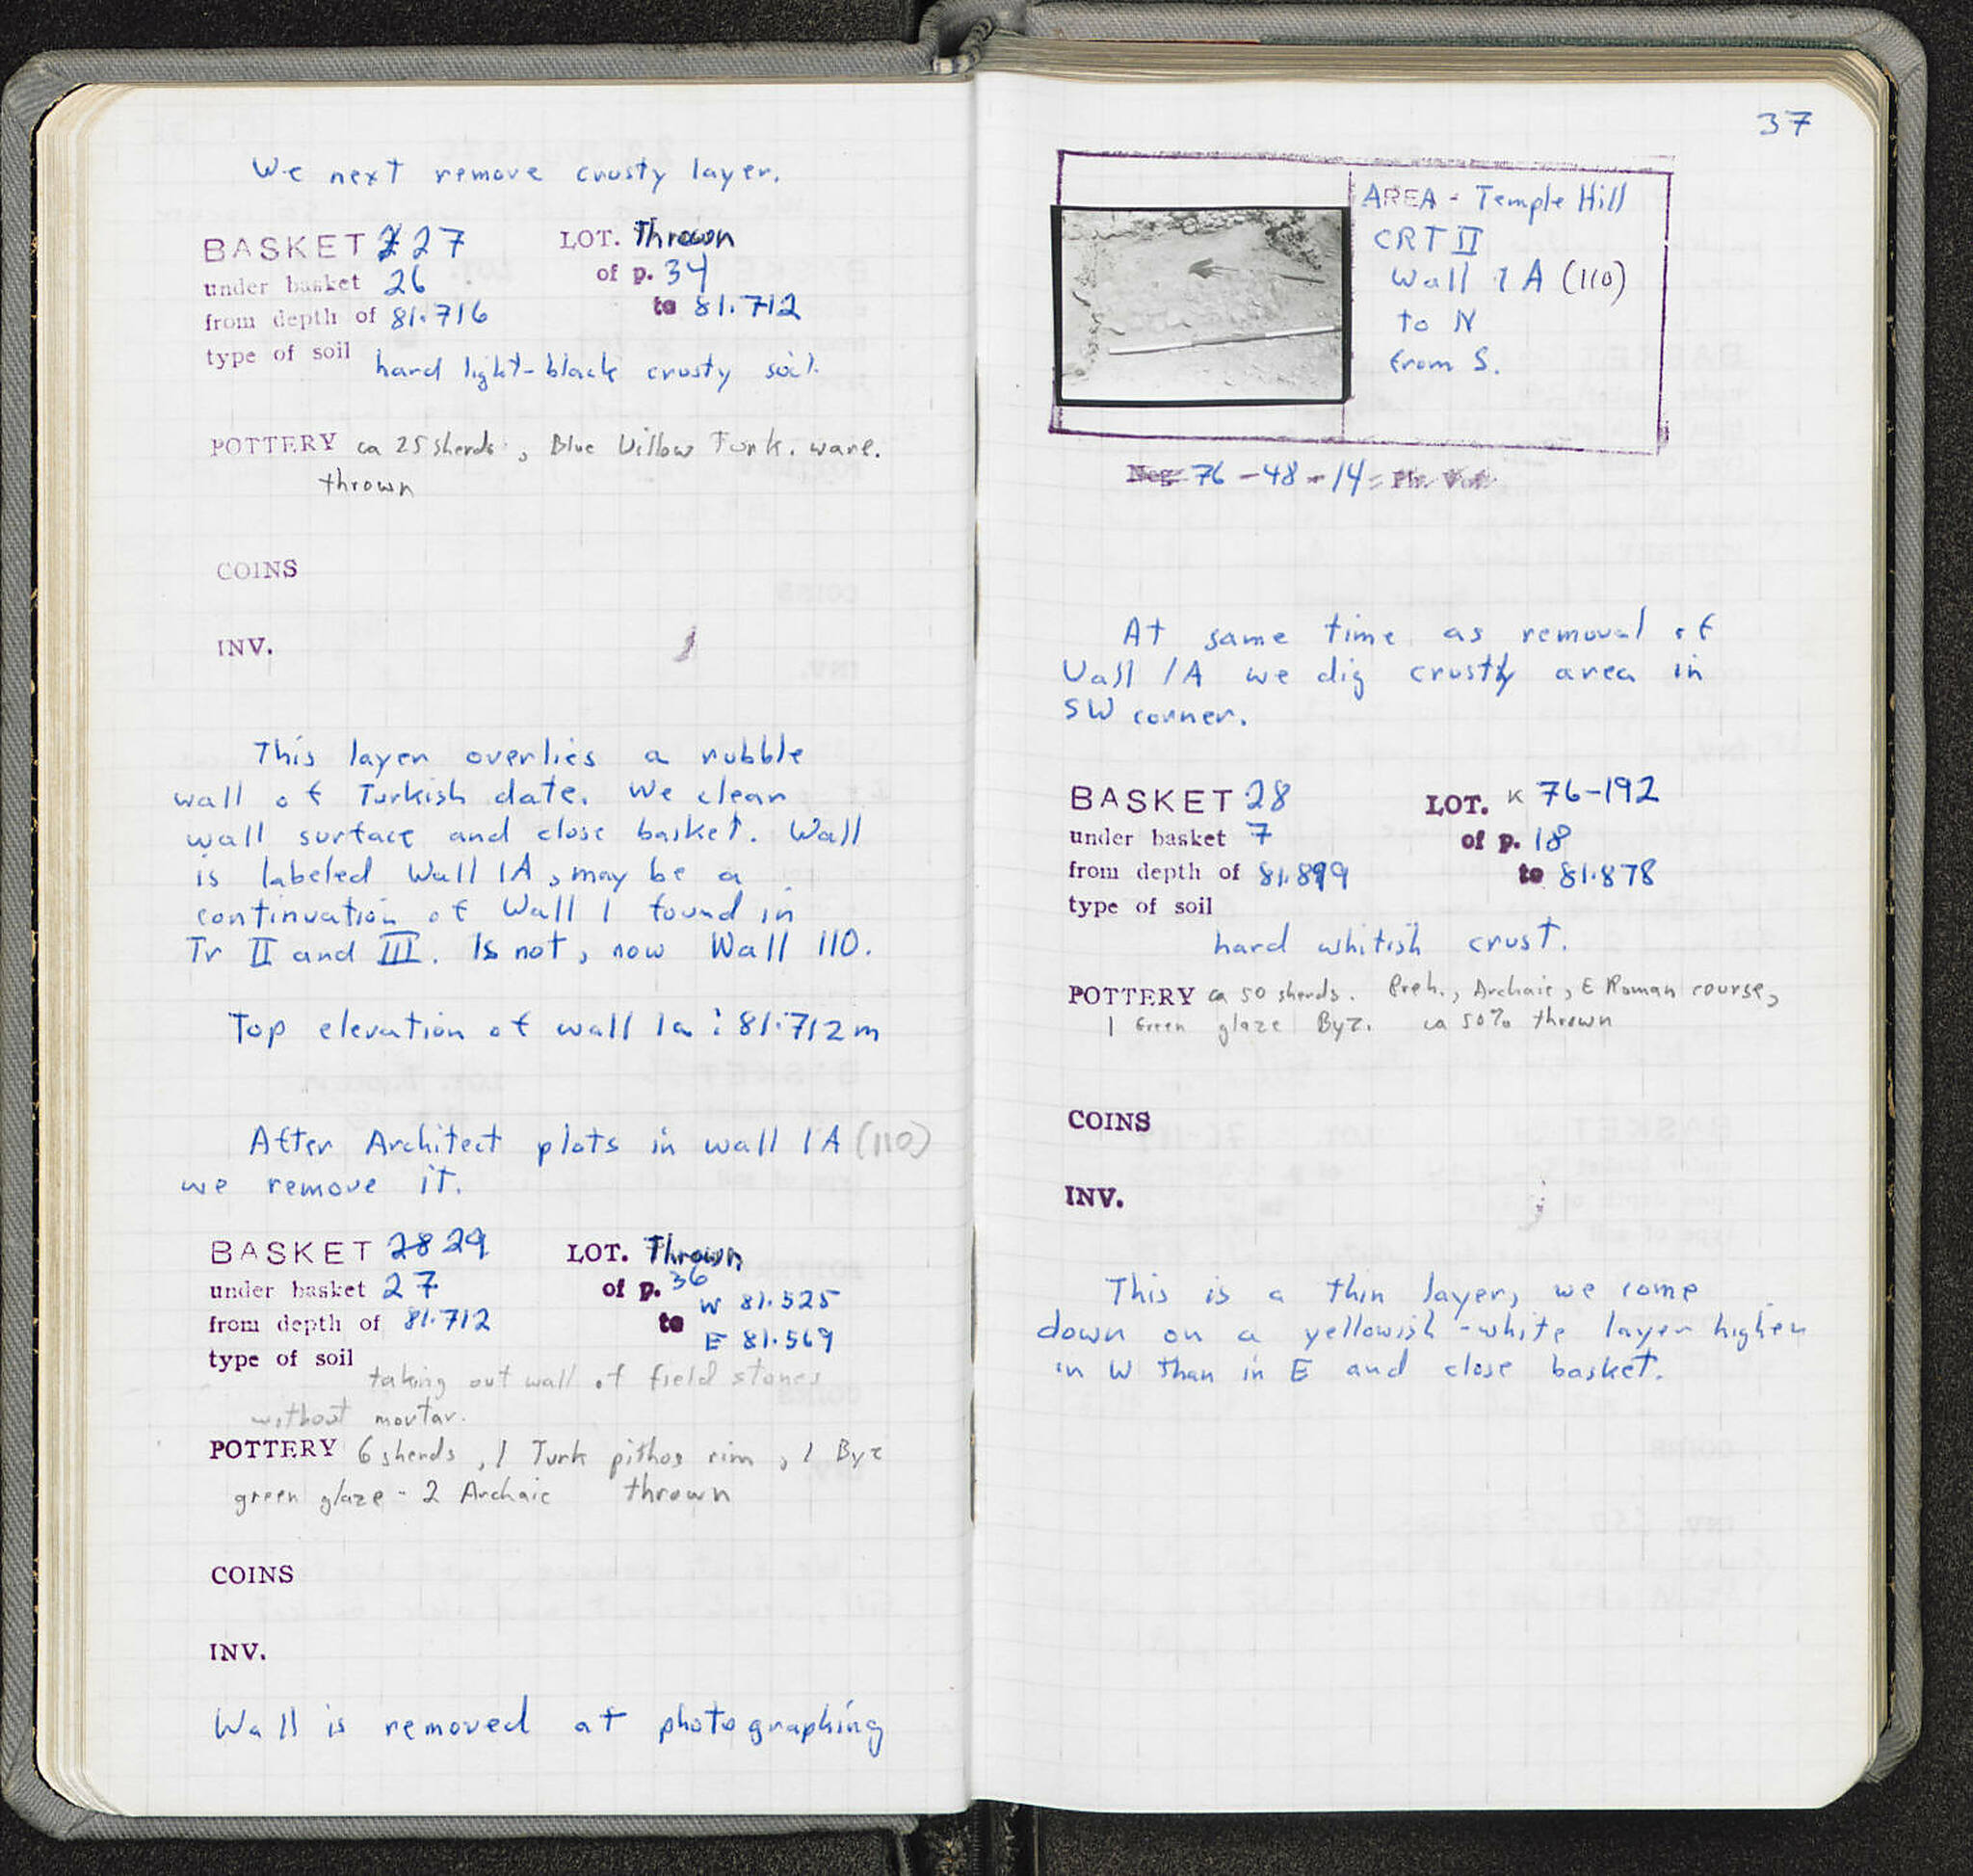 We next remove crusty layer.
BASKET 27 LOT. Thrown
under basket 26 of p. 34
from depth of 81.716 to 81.712
type of soil hard light-black crusty soil.
POTTERY ca 25 sherds, Blue Willow Turk. ware.
thrown
COINS
INV.
This layer overlies a rubble
wall of Turkish date. We clean
wall surface and close basket. Wall
is labeled Wall 1A, may be a
continuation of Wall 1 found in
Tr II and III. Is not, now Wall 110.
Top elevation of wall 1a : 81.712 m
After Architect plots in wall 1A (110)
we remove it.
BASKET 28 29 LOT. Thrown
under basket 27 of p. 36
from depth of 81.712 to W 81.525
E 81.569
type of soil taking out wall of field stones
without mortar.
POTTERY 6 sherds, 1 Turk pithos rim, 1 Byz
green glaze - 2 Archaic thrown
COINS
INV.
Wall is removed at photographing
37
AREA - Temple Hill
CRT II
Wall 1A (110)
to N
from S.
Neg. 76-48-14
At same time as removal of
Wall 1A we dig crusty area in
SW corner.
BASKET 28 LOT. K 76-192
under basket 7 of p. 18
from depth of 81.899 to 81.878
type of soil
hard whitish crust.
POTTERY ca 50 sherds. Preh., Archaic, E Roman course,
1 Green glaze Byz. ca 50% thrown
COINS
INV.
This is a thin layer, we come
down on a yellowish-white layer higher
in W than in E and close basket.